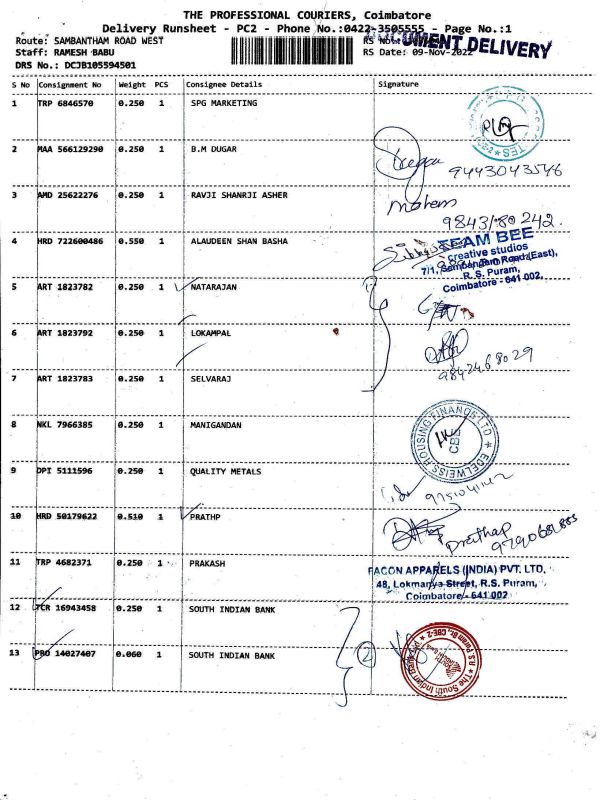 THE PROFESSIONAL COURIERS, Coimbatore
Delivery Runsheet - PC2 - Phone No.:0422-3505555 - Page No.:1
Route: SAMBANTHAM ROAD WEST RS No
DOCUMENT DELIVERY
Staff: RAMESH BABU RS Date: 09-Nov-2022
DRS No.: DCJB105594501
S No Consignment No Weight PCS Consignee Details Signature
1 TRP 6846570 0.250 1 SPG MARKETING
2 MAA 566129290 0.250 1 B.M DUGAR
9443043546
3 AMD 25622276 0.250 1 RAVJI SHANRJI ASHER
mohem
9843180242.
4 HRD 722600486 0.550 1 ALAUDEEN SHAN BASHA
TEAM BEE
creative studios
7/1, Sambandam Road (East),
R.S. Puram,
Coimbatore - 641 002.
5 ART 1823782 0.250 1 NATARAJAN
6 ART 1823792 0.250 1 LOKAMPAL
9842468029
7 ART 1823783 0.250 1 SELVARAJ
8 NKL 7966385 0.250 1 MANIGANDAN
EDELWEISS HOUSING FINANCE LTD
CBE
9 DPI 5111596 0.250 1 QUALITY METALS
9751041142
10 HRD 50179622 0.510 1 PRATHP
Prathap
11 TRP 4682371 0.250 1 PRAKASH
FACON APPARELS (INDIA) PVT. LTD.
48, Lokmanya Street, R.S. Puram,
Coimbatore - 641 002
12 TCR 16943458 0.250 1 SOUTH INDIAN BANK
13 PRO 14027407 0.060 1 SOUTH INDIAN BANK
2
The South Indian Bank
R.S. Puram Br., CBE-2